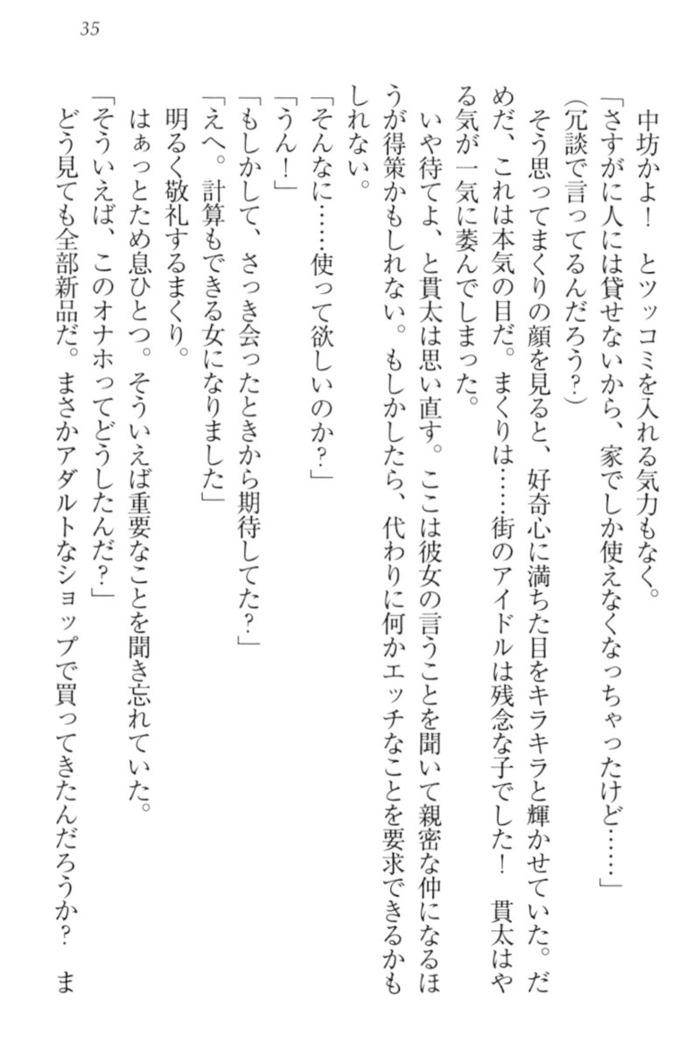 35
中坊かよ！　とツッコミを入れる気力もなく。
「さすがに人には貸せないから、家でしか使えなくなっちゃったけど……」
（冗談で言ってるんだろう？）
そう思ってまくりの顔を見ると、好奇心に満ちた目をキラキラと輝かせていた。だ
めだ、これは本気の目だ。まくりは……街のアイドルは残念な子でした！　貫太はや
る気が一気に萎んでしまった。
いや待てよ、と貫太は思い直す。ここは彼女の言うことを聞いて親密な仲になるほ
うが得策かもしれない。もしかしたら、代わりに何かエッチなことを要求できるかも
しれない。
「そんなに……使って欲しいのか？」
「うん！」
「もしかして、さっき会ったときから期待してた？」
「えへ。計算もできる女になりました」
明るく敬礼するまくり。
はぁっとため息ひとつ。そういえば重要なことを聞き忘れていた。
「そういえば、このオナホってどうしたんだ？」
どう見ても全部新品だ。まさかアダルトなショップで買ってきたんだろうか？　ま